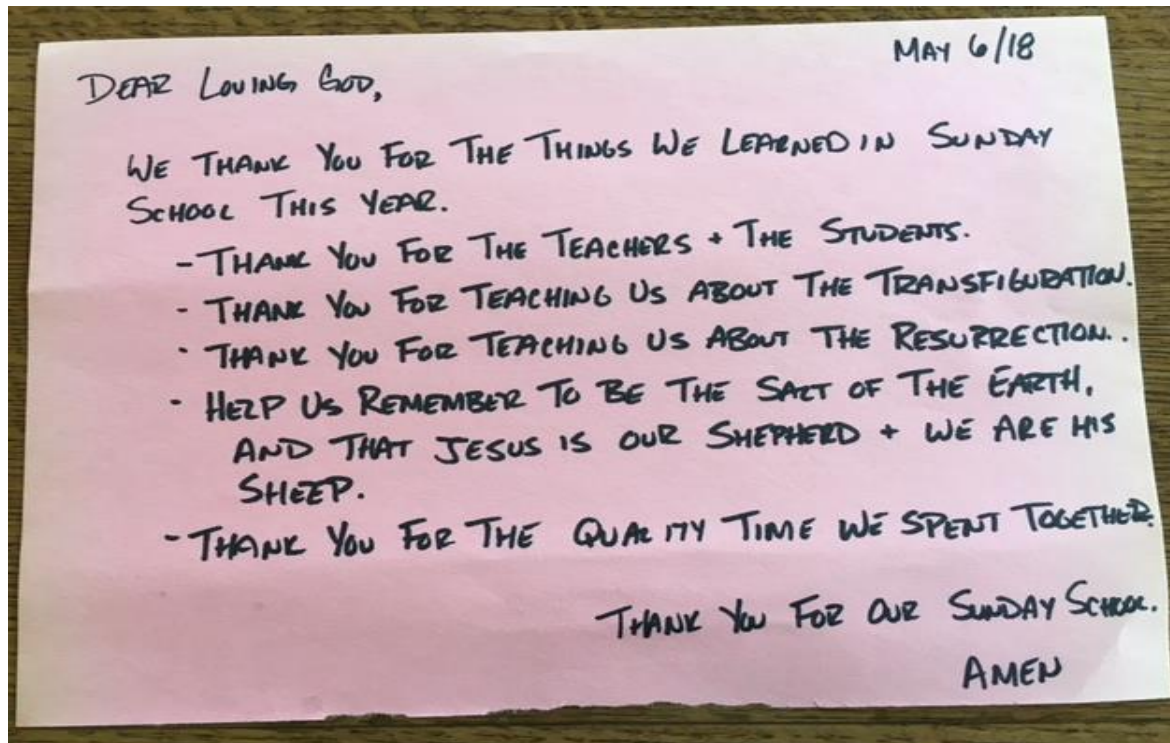 MAY 6/18
DEAR LOVING GOD,
WE THANK YOU FOR THE THINGS WE LEARNED IN SUNDAY
SCHOOL THIS YEAR.
- THANK YOU FOR THE TEACHERS + THE STUDENTS.
- THANK YOU FOR TEACHING US ABOUT THE TRANSFIGURATION.
- THANK YOU FOR TEACHING US ABOUT THE RESURRECTION..
- HELP US REMEMBER TO BE THE SALT OF THE EARTH,
AND THAT JESUS IS OUR SHEPHERD + WE ARE HIS
SHEEP.
- THANK YOU FOR THE QUALITY TIME WE SPENT TOGETHER.
THANK YOU FOR OUR SUNDAY SCHOOL.
AMEN